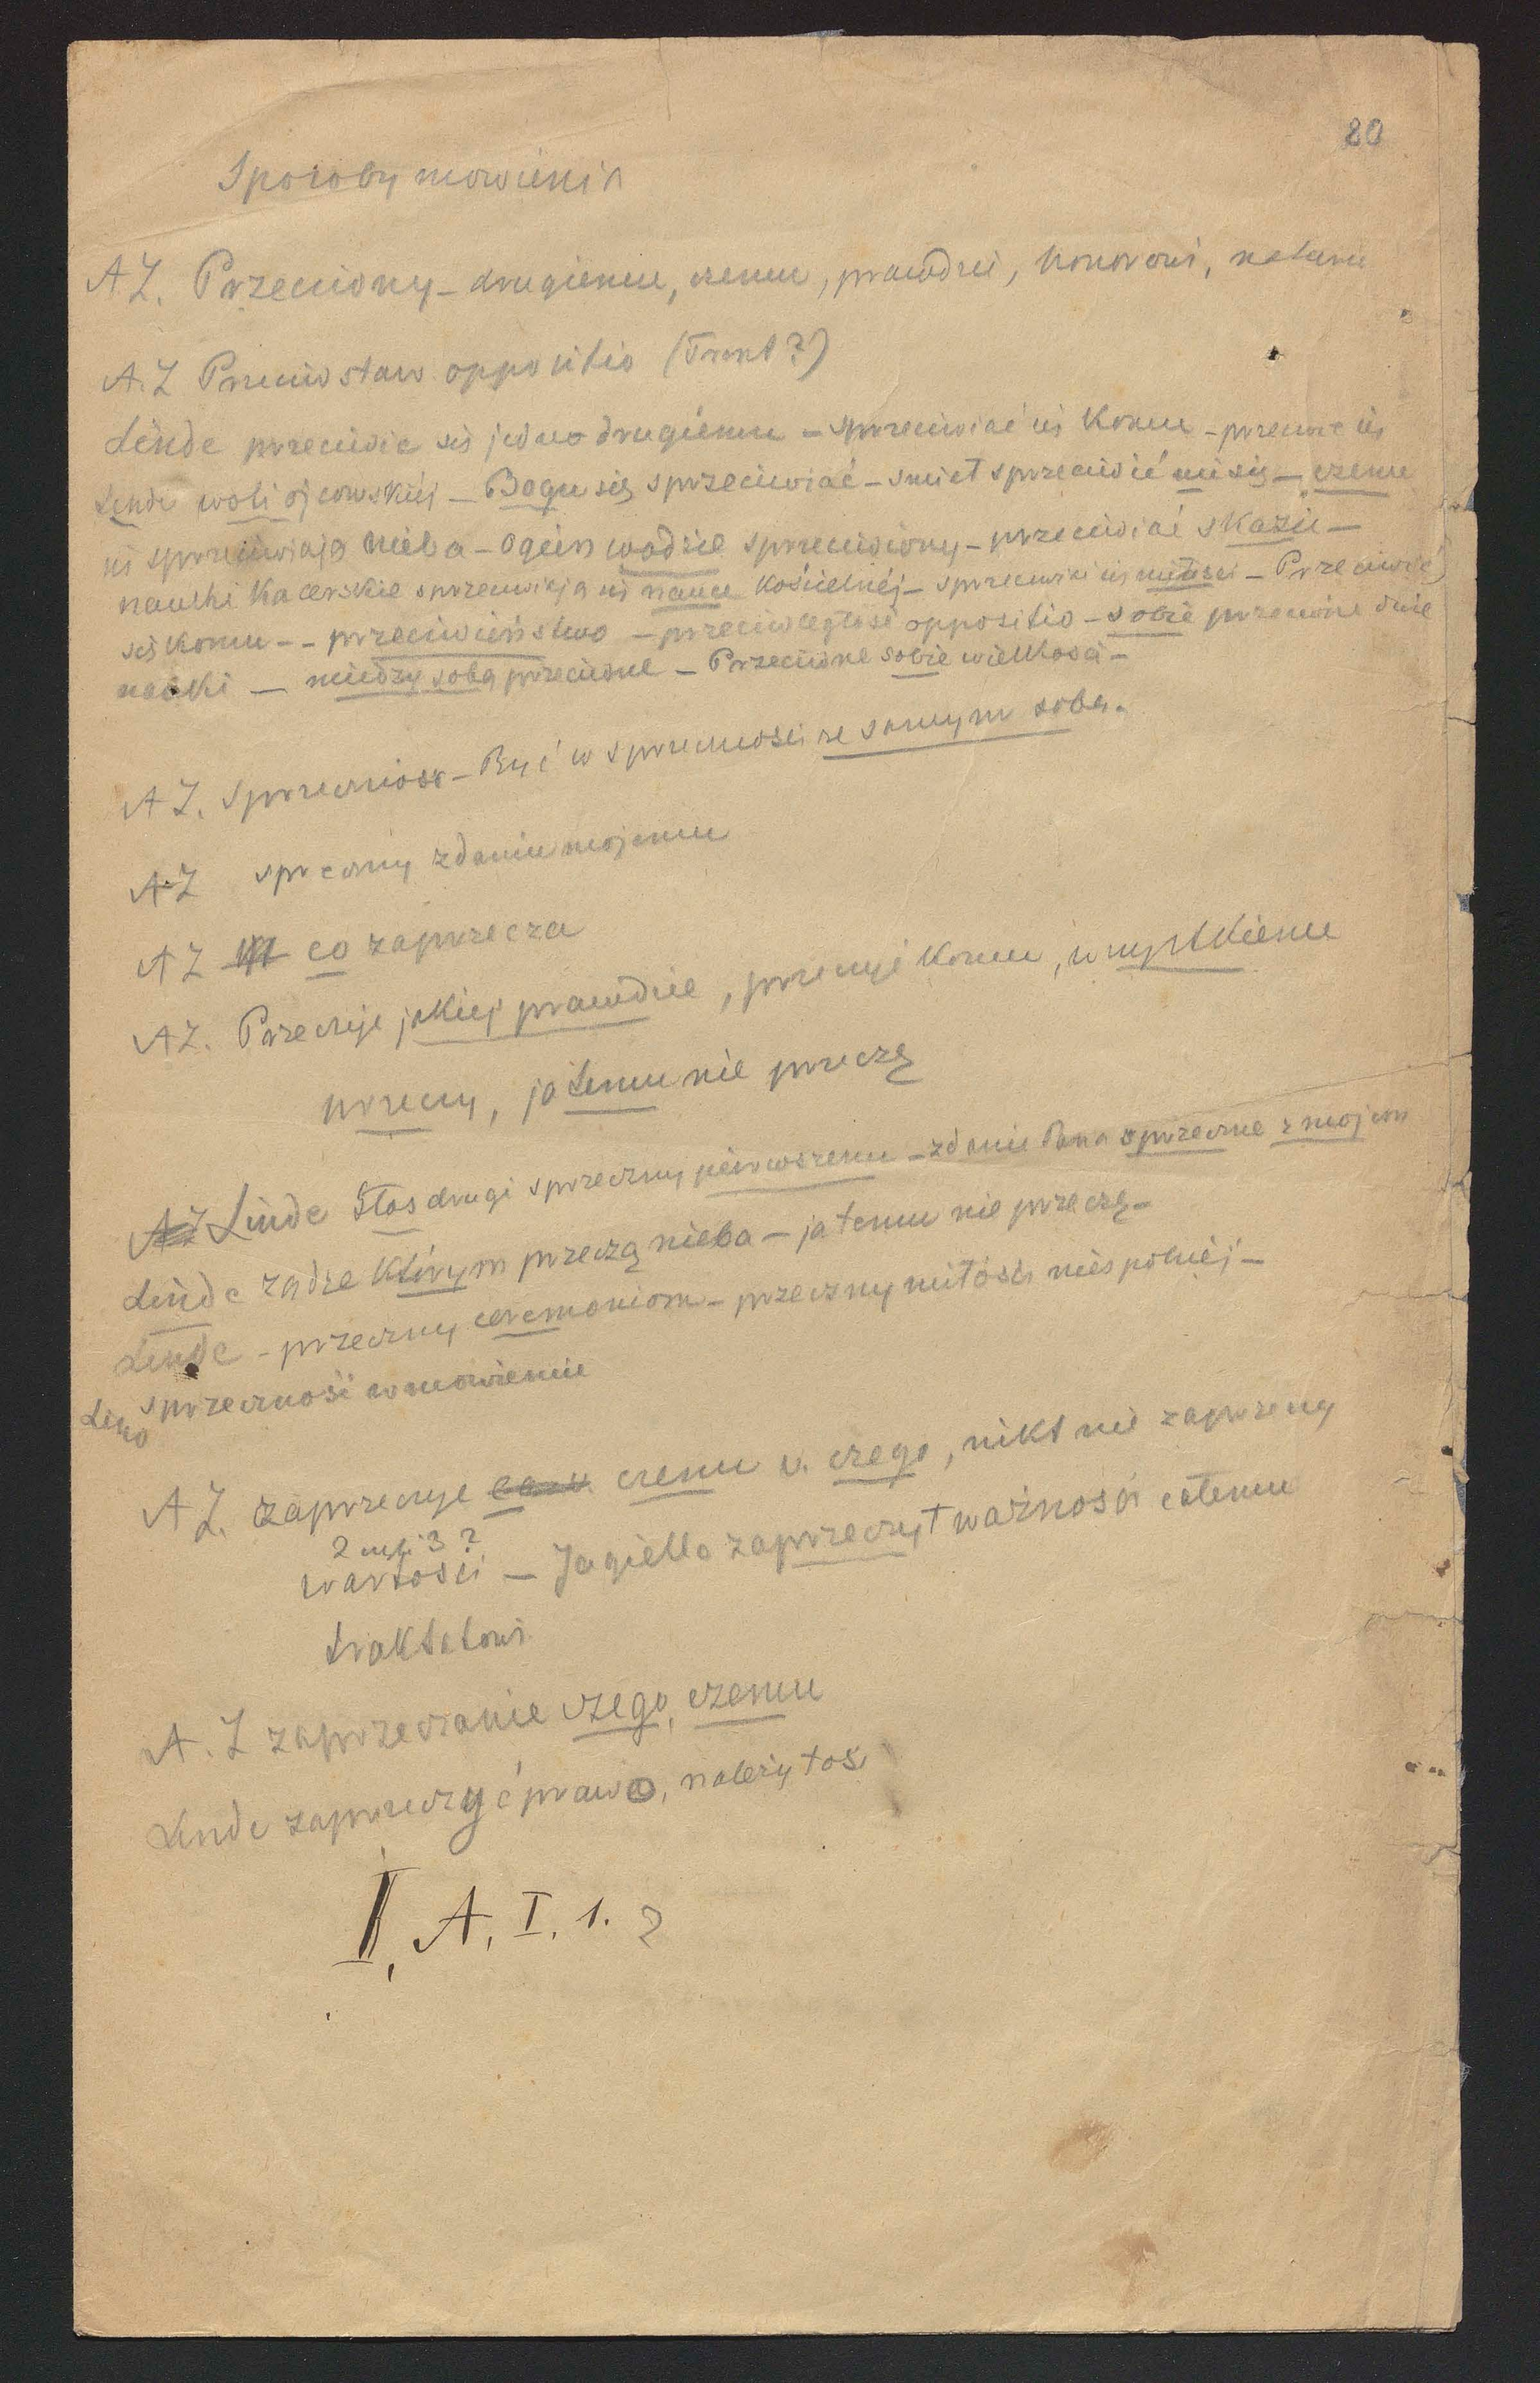 80
Sposoby mowienia
A Z. Przeciwny - drugiemu, czemu, prawdzie, honorowi, naturze
A. Z Przeciwstaw oppositio (Trent?)
Linde przeciwic się jedno drugiému - sprzeciwiać się Komu - przeciwic się
Linde woli ojcowskiéj - Bogu się sprzeciwiać - smiał sprzeciwić mi się - czemu
się sprzeciwiają nieba - Ogień wodzie sprzeciwiony - przeciwiać skazie -
nauki Kacerskie sprzeciwiają się nauce Kościelnéj - sprzeciwić się miłosci - Przeciwić
się Komu - - przeciwieństwo - przeciwległość oppositio - sobie przeciwne dwie
nauki - między sobą przeciwne - Przeciwne sobie wielkosci -
A Z. sprzecznosc - Być w sprzecznosci ze samym sobą.
A Z sprzeczny zdaniu mojemu
A Z co zaprzecza
A Z. Przeczyć jakiej prawdzie, przeczyć Komu, wszystkiemu
przeczy, ja temu nie przeczę
A Z Linde Głos drugi sprzeczny pierwszemu - zdanie Pana sprzeczne z mojem
Linde rządze Którym przeczą nieba - ja temu nie przeczę -
Linde - przeczny ceremoniom - przeczny miłości niespolnéj -
Lind sprzeczność w mowieniu
A Z. Zaprzeczyć czemu v. czego, nikt nie zaprzeczy
2 czyli 3 ?
wartosci - Jagiello zaprzeczył ważności całemu
traktatowi.
A. Z zaprzeczanie czego, czemu
Linde zaprzeczyć prawo, należytość
II, A, I, 1. 2